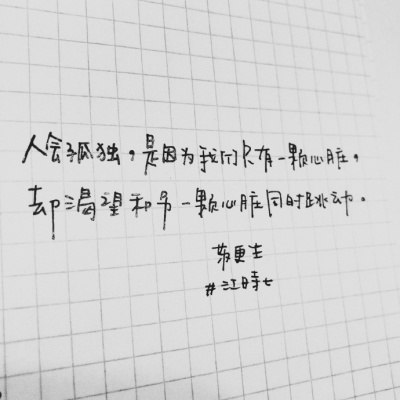 人会孤独，是因为我们只有一颗心脏，
却渴望和另一颗心脏同时跳动。
苏更生
#江時七